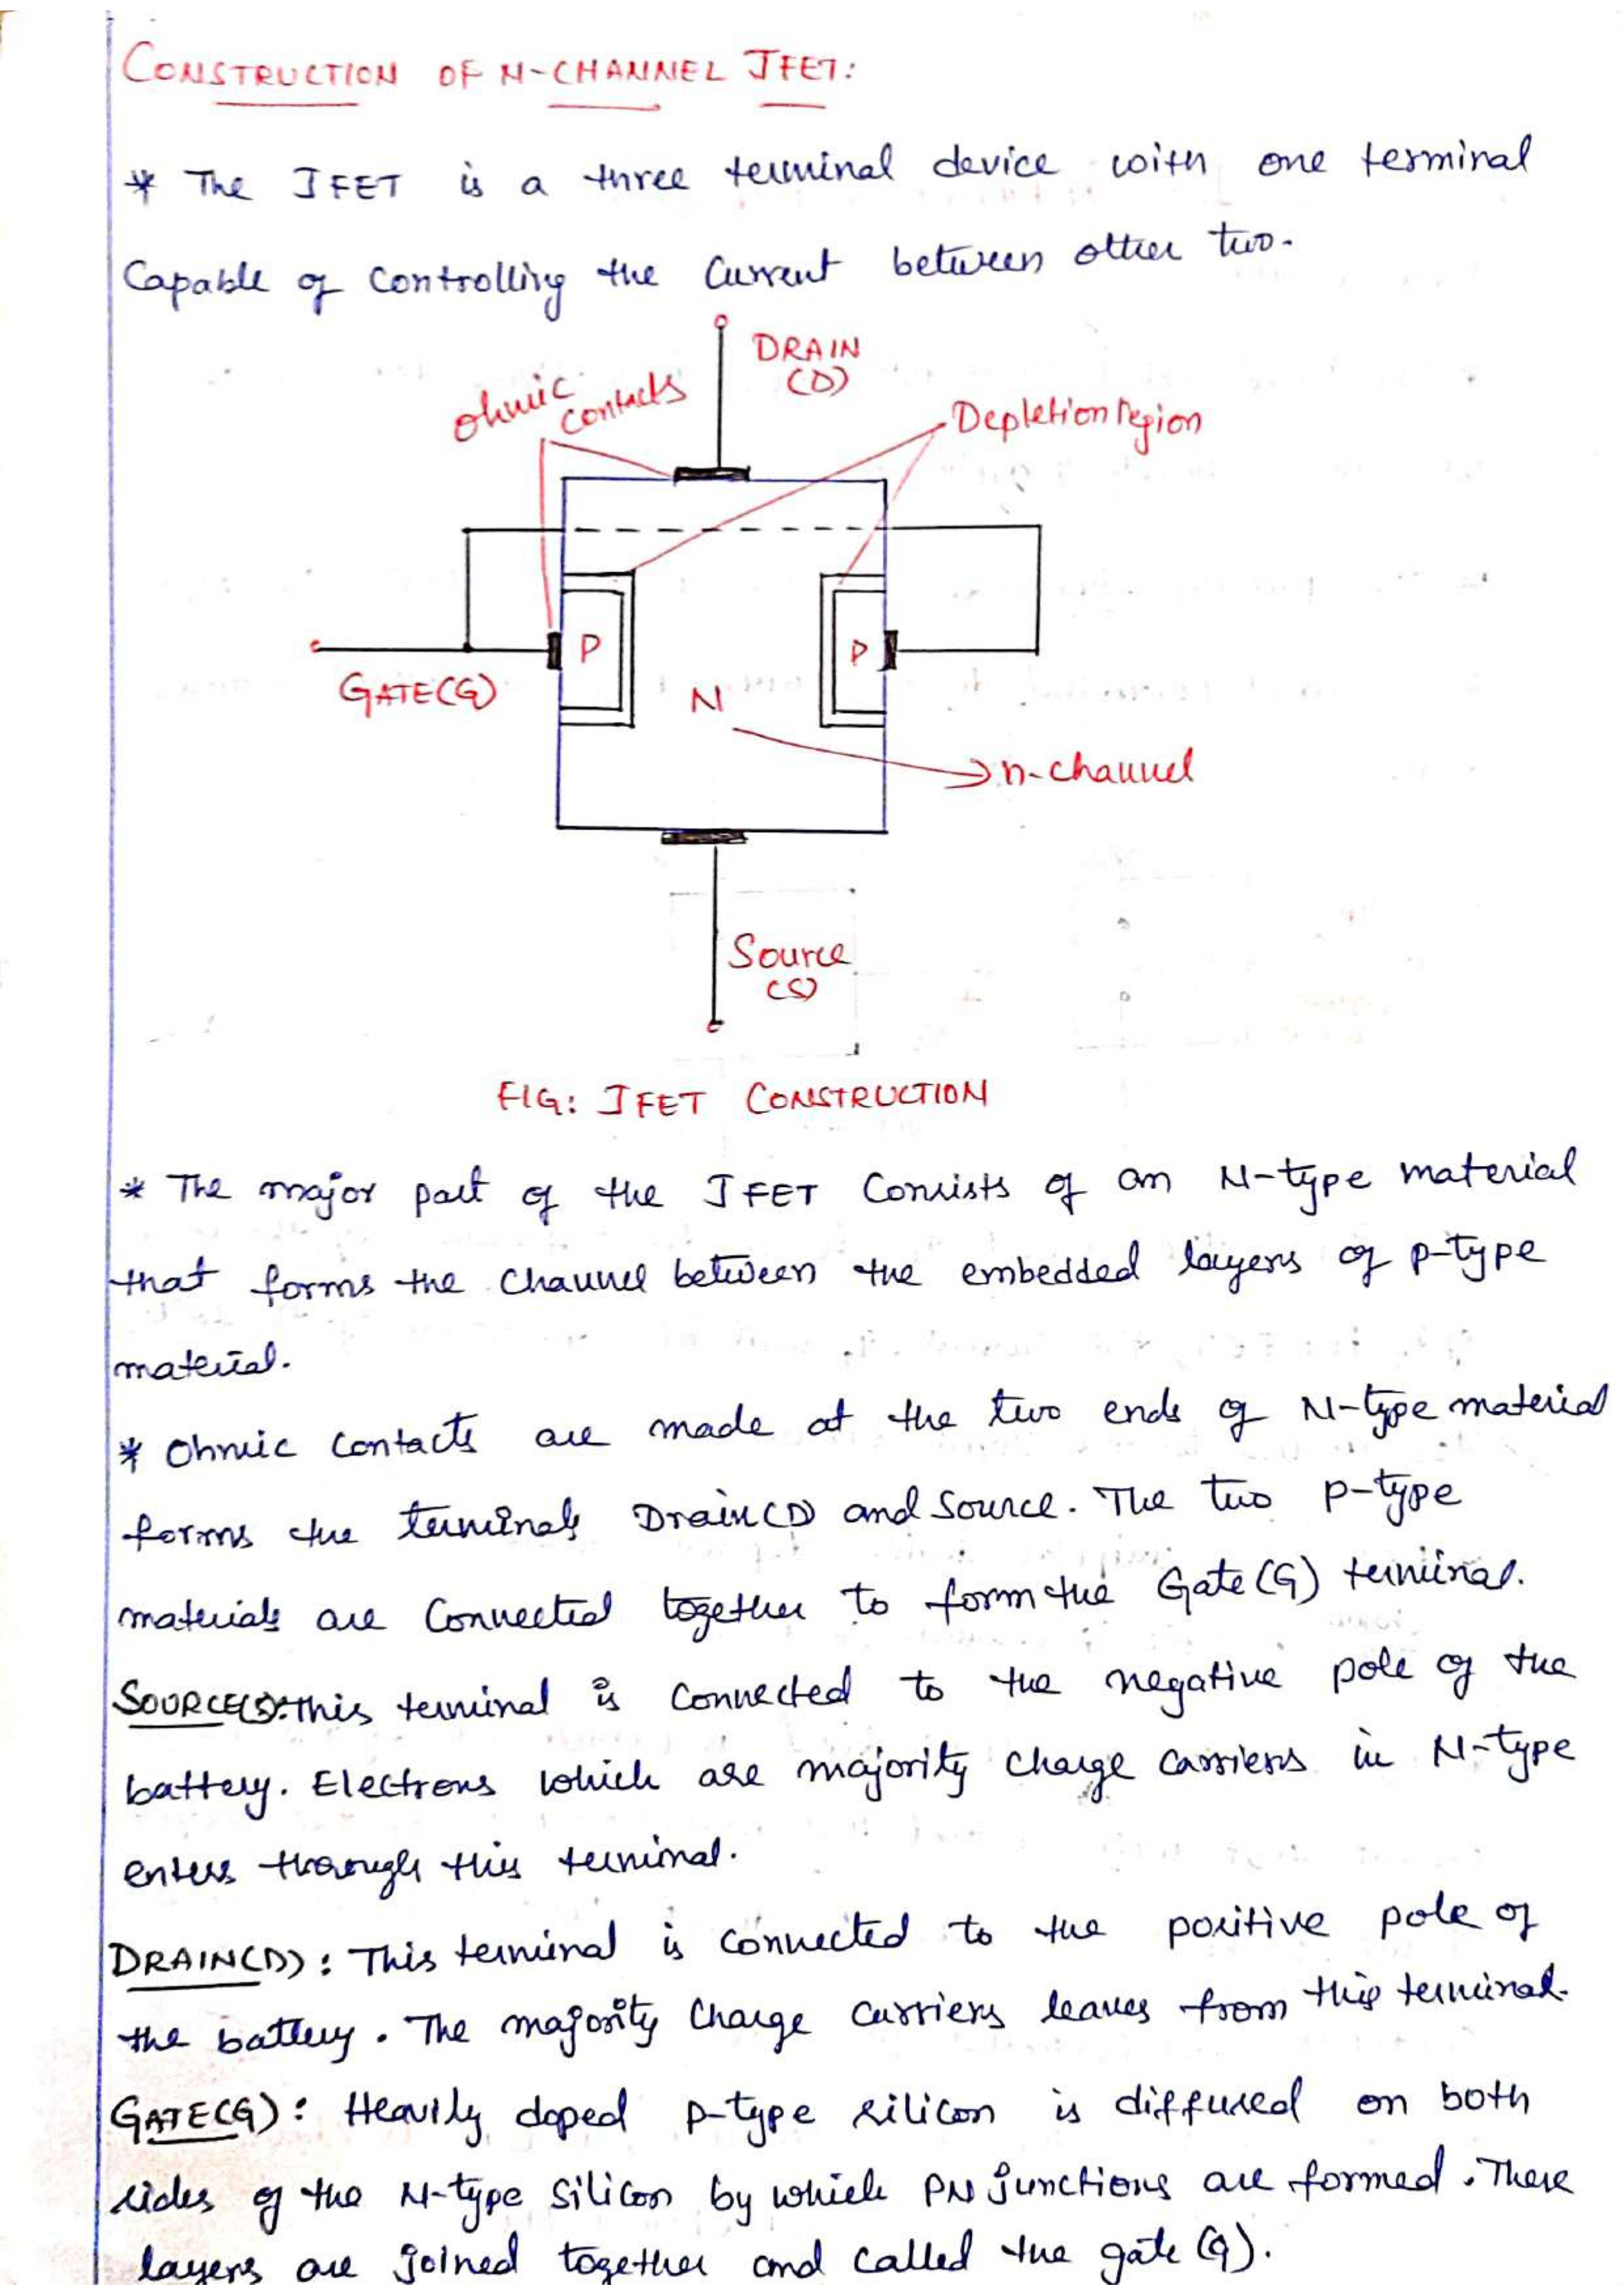 CONSTRUCTION OF N-CHANNEL JFET:
* The JFET is a three terminal device with one terminal
Capable of Controlling the Current between other two.
DRAIN
(D)
ohmic
contacts
Depletion region
P
P
GATE(G)
N
n-channel
Source
(S)
FIG: JFET CONSTRUCTION
* The major part of the JFET Consists of an N-type material
that forms the Channel between the embedded layers of p-type
material.
* Ohmic Contacts are made at the two ends of N-type material
forms the terminals Drain(D) and Source. The two p-type
materials are Connected together to form the Gate(G) terminal.
SOURCE(S): This terminal is Connected to the negative pole of the
battery. Electrons which are majority charge carriers in N-type
enters through this terminal.
DRAIN(D): This terminal is Connected to the positive pole of
the battery. The majority Charge Carriers leaves from this terminal.
GATE(G): Heavily doped p-type silicon is diffused on both
sides of the N-type Silicon by which PN junctions are formed. These
layers are joined together and called the gate (G).